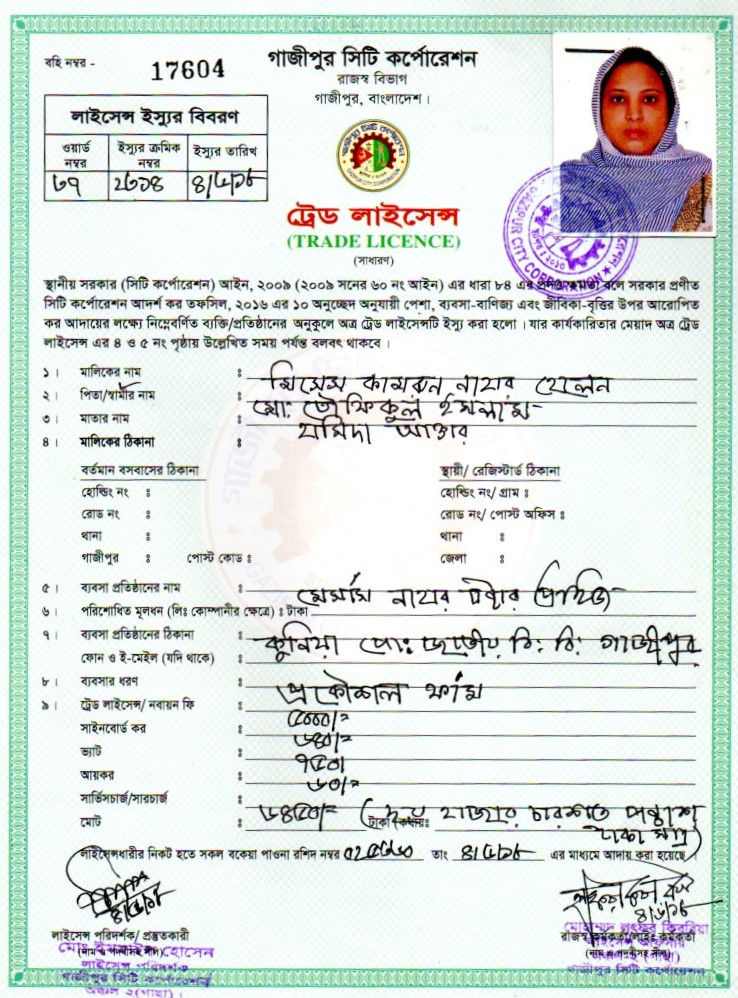 বহি নম্বর - 17604
গাজীপুর সিটি কর্পোরেশন
রাজস্ব বিভাগ
গাজীপুর, বাংলাদেশ।
লাইসেন্স ইস্যুর বিবরণ
ওয়ার্ড নম্বর ইস্যুর ক্রমিক নম্বর ইস্যুর তারিখ
৩৭
GAZIPUR CITY CORPORATION
ট্রেড লাইসেন্স
(TRADE LICENCE)
(সাধারণ)
স্থানীয় সরকার (সিটি কর্পোরেশন) আইন, ২০০৯ (২০০৯ সনের ৬০ নং আইন) এর ধারা ৮৪ এর প্রদত্ত ক্ষমতা বলে সরকার প্রণীত
সিটি কর্পোরেশন আদর্শ কর তফসিল, ২০১৬ এর ১০ অনুচ্ছেদ অনুযায়ী পেশা, ব্যবসা-বাণিজ্য এবং জীবিকা-বৃত্তির উপর আরোপিত
কর আদায়ের লক্ষ্যে নিম্নেবর্ণিত ব্যক্তি/প্রতিষ্ঠানের অনুকুলে অত্র ট্রেড লাইসেন্সটি ইস্যু করা হলো। যার কার্যকারিতার মেয়াদ অত্র ট্রেড
লাইসেন্স এর ৪ ও ৫ নং পৃষ্ঠায় উল্লেখিত সময় পর্যন্ত বলবৎ থাকবে।
১। মালিকের নাম : মিসেস কামরুন নাহার হেলেন
২। পিতা/স্বামীর নাম : মো: তৌফিকুল ইসলাম
৩। মাতার নাম : আক্তার
৪। মালিকের ঠিকানা :
বর্তমান বসবাসের ঠিকানা স্থায়ী/ রেজিস্টার্ড ঠিকানা
হোল্ডিং নং : হোল্ডিং নং/ গ্রাম :
রোড নং : রোড নং/ পোস্ট অফিস :
থানা : থানা :
গাজীপুর : পোস্ট কোড : জেলা :
৫। ব্যবসা প্রতিষ্ঠানের নাম : মেসার্স নাহার
৬। পরিশোধিত মূলধন (লিঃ কোম্পানীর ক্ষেত্রে) : টাকা
৭। ব্যবসা প্রতিষ্ঠানের ঠিকানা : কুনিয়া পো: জাতীয় বি: বি: গাজীপুর
ফোন ও ই-মেইল (যদি থাকে) :
৮। ব্যবসার ধরণ : প্রকৌশল ফার্ম
৯। ট্রেড লাইসেন্স/ নবায়ন ফি : ৫০০০/=
সাইনবোর্ড কর : ৬৪০/=
ভ্যাট : ৭৫০/
আয়কর : ৬০/=
সার্ভিসচার্জ/সারচার্জ :
মোট : ৬৪৫০/= টাকা কথায়: (ছয় হাজার চারশত পঞ্চাশ
টাকা মাত্র)
লাইসেন্সধারীর নিকট হতে সকল বকেয়া পাওনা রশিদ নম্বর তাং এর মাধ্যমে আদায় করা হয়েছে।
লাইসেন্স পরিদর্শক/ প্রস্তুতকারী
(নাম ও পদবীসহ সীল)
হোসেন
লাইসেন্স পরিদর্শক
গাজীপুর সিটি কর্পোরেশন
অঞ্চল ২(গাছা)।
মোহাম্মদ লুৎফর কিবরিয়া
রাজস্ব কর্মকর্তা/লাইঃ কর্মকর্তা
(নাম ও পদবীসহ সীল)
গাজীপুর সিটি কর্পোরেশন